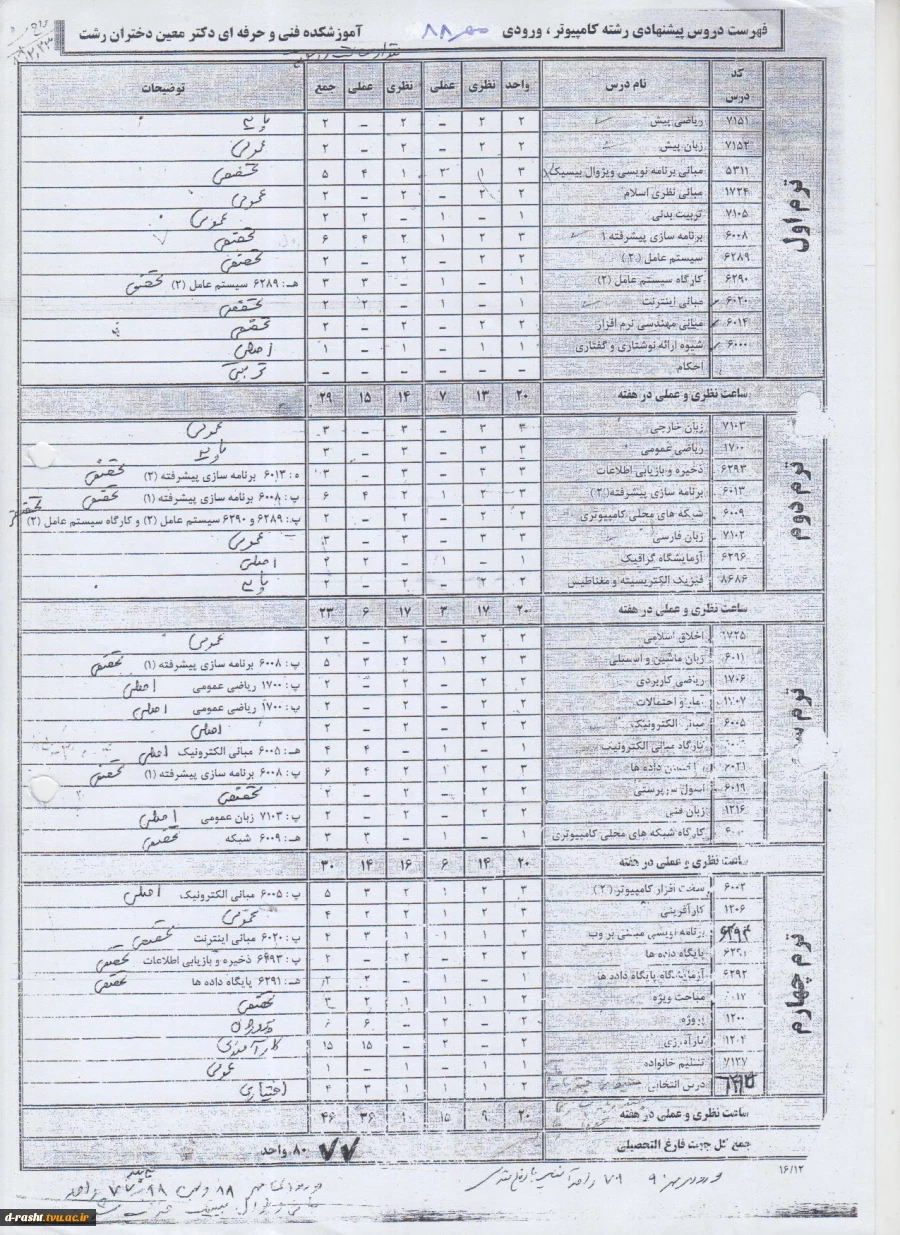 فهرست دروس پیشنهادی رشته کامپیوتر ، ورودی مهر ۸۸ آموزشکده فنی و حرفه ای دکتر معین دختران رشت
کد درس نام درس واحد نظری عملی نظری عملی جمع توضیحات
ترم اول
۷۱۵۱ ریاضی پیش ۲ ۲ – ۲ – ۲ پایه
۷۱۵۲ زبان پیش ۲ ۲ – ۲ – ۲ عمومی
۵۳۱۱ مبانی برنامه نویسی ویژوال بیسیک ۳ ۱ ۱ ۴ ۵ تخصصی
۱۷۲۴ مبانی نظری اسلام ۲ ۲ – ۲ – ۲ عمومی
۷۱۰۵ تربیت بدنی ۱ – ۱ – ۲ ۲ عمومی
۶۰۰۸ برنامه سازی پیشرفته ۱ ۳ ۲ ۱ ۲ ۴ ۶ تخصصی
۶۲۸۹ سیستم عامل (۲) ۲ ۲ – ۲ – ۲ تخصصی
۶۲۹۰ کارگاه سیستم عامل (۲) ۱ – ۱ – ۳ ۳ هـ: ۶۲۸۹ سیستم عامل (۲) تخصصی
۶۰۲۰ مبانی اینترنت ۱ – ۱ – ۲ ۲ تخصصی
۶۰۱۴ مبانی مهندسی نرم افزار ۲ ۲ – ۲ – ۲ تخصصی
۶۰۰۰ شیوه ارائه نوشتاری و گفتاری ۱ ۱ – ۱ – ۱ اصلی
احکام – – – – – – تربیتی
ساعت نظری و عملی در هفته ۲۰ ۱۳ ۷ ۱۴ ۱۵ ۲۹
ترم دوم
۷۱۰۳ زبان خارجی ۳ ۳ – ۳ – ۳ عمومی
۱۷۰۰ ریاضی عمومی ۳ ۳ – ۳ – ۳ پایه
۶۲۹۳ ذخیره و بازیابی اطلاعات ۳ ۳ – ۳ – ۳ ه: ۶۰۱۳ برنامه سازی پیشرفته (۲) تخصصی
۶۰۱۳ برنامه سازی پیشرفته (۲) ۳ ۲ ۱ ۲ ۴ ۶ پ: ۶۰۰۸ برنامه سازی پیشرفته (۱) تخصصی
۶۰۰۹ شبکه های محلی کامپیوتری ۲ ۲ – ۲ – ۲ پ: ۶۲۸۹ و ۶۲۹۰ سیستم عامل (۲) و کارگاه سیستم عامل (۲) تخصصی
۷۱۰۲ زبان فارسی ۳ ۳ – ۳ – ۳ عمومی
۶۲۹۶ آزمایشگاه گرافیک ۱ – ۱ – ۲ ۲ اصلی
۸۶۸۶ فیزیک الکتریسیته و مغناطیس ۲ ۲ – ۲ – ۲ پایه
ساعت نظری و عملی در هفته ۲۰ ۱۷ ۳ ۱۷ ۶ ۲۳
ترم سوم
۱۷۲۵ اخلاق اسلامی ۲ ۲ – ۲ – ۲ عمومی
۶۰۱۱ زبان ماشین و اسمبلی ۳ ۲ ۱ ۲ ۳ ۵ پ: ۶۰۰۸ برنامه سازی پیشرفته (۱) تخصصی
۱۷۰۶ ریاضی کاربردی ۲ ۲ – ۲ – ۲ پ: ۱۷۰۰ ریاضی عمومی اصلی
آمار و احتمالات ۲ ۲ – ۲ – ۲ پ: ۱۷۰۰ ریاضی عمومی اصلی
۶۰۰۵ مبانی الکترونیک ۲ ۲ – ۲ – ۲ اصلی
کارگاه مبانی الکترونیک ۱ – ۱ – ۴ ۴ هـ: ۶۰۰۵ مبانی الکترونیک اصلی
۶۰۲۱ ساختمان داده ها ۳ ۲ ۱ ۲ ۴ ۶ پ: ۶۰۰۸ برنامه سازی پیشرفته (۱) تخصصی
۶۰۱۹ اصول سرپرستی ۲ ۲ – ۲ – ۲ تخصصی
۱۲۱۶ زبان فنی ۲ ۲ – ۲ – ۲ پ: ۷۱۰۳ زبان عمومی اصلی
کارگاه شبکه های محلی کامپیوتری ۱ – ۱ – ۳ ۳ هـ: ۶۰۰۹ شبکه تخصصی
ساعت نظری و عملی در هفته ۲۰ ۱۴ ۶ ۱۶ ۱۴ ۳۰
ترم چهارم
۶۰۰۲ سخت افزار کامپیوتر (۲) ۳ ۲ ۱ ۲ ۳ ۵ پ: ۶۰۰۵ مبانی الکترونیک اصلی
۱۲۰۶ کارآفرینی ۳ ۲ ۱ ۲ ۲ ۴ عمومی
۶۲۹۴ برنامه نویسی مبتنی بر وب ۲ ۱ ۱ ۱ ۳ ۴ پ: ۶۰۲۰ مبانی اینترنت تخصصی
۶۲۹۱ پایگاه داده ها ۲ ۲ – ۲ – ۲ پ: ۶۲۹۳ ذخیره و بازیابی اطلاعات تخصصی
۶۲۹۲ آزمایشگاه پایگاه داده ها ۱ – ۱ – ۲ ۲ هـ: ۶۲۹۱ پایگاه داده ها تخصصی
مباحث ویژه ۲ ۱ ۱ ۱ ۲ ۳ تخصصی
۱۲۰۰ پروژه ۲ – ۲ – ۶ ۶ پروژه
۱۲۰۴ کارآموزی ۲ – ۲ – ۱۵ ۱۵ کارآموزی
۷۱۲۷ تنظیم خانواده ۱ ۱ – ۱ – ۱ عمومی
درس انتخابی ۲ ۱ ۱ ۱ ۳ ۴ اختیاری
ساعت نظری و عملی در هفته ۲۰ ۹ ۱۵ ۱۰ ۳۶ ۴۶
جمع کل جهت فارغ التحصیلی ۷۷ ۸۰ واحد
۱۶/۱۲
d-rasht.tvu.ac.ir